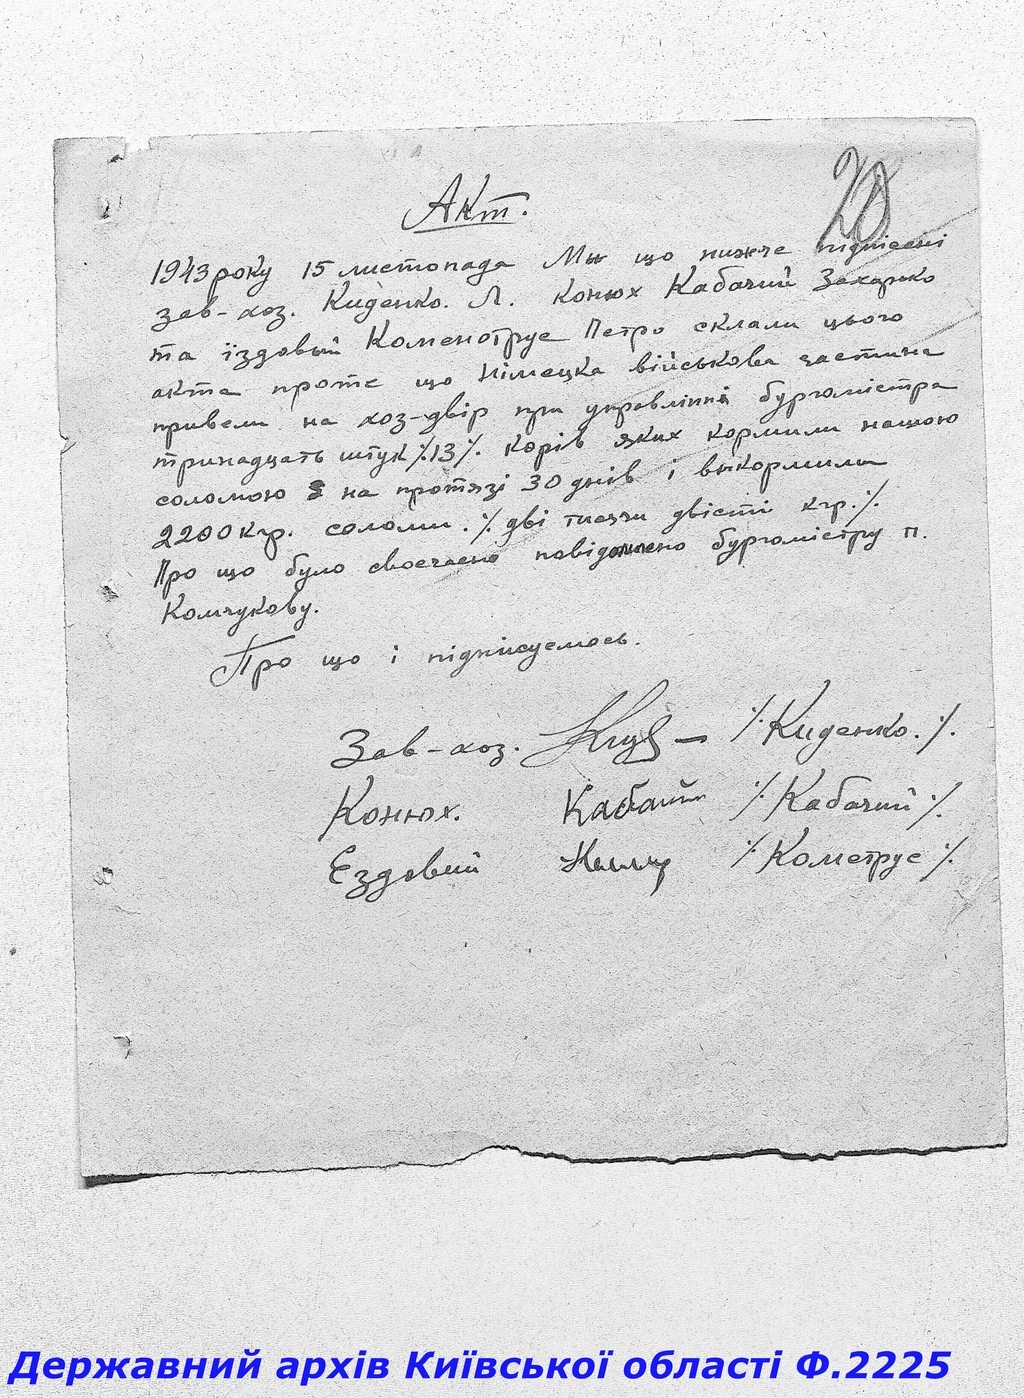 28
Акт.
1943 року 15 листопада Ми що нижче підписані
зав-хоз. Киденко. Л. конюх Кабачий Захарко
та їздовый Коменотрус Петро склали цього
акта проте що Німецка військова частина
привели на хоз-двір при управлінні бургомістра
тринадцать штук ٪13٪ корів яких кормили нашою
соломою на протязі 30 днів і выкормили
2200 кгр. соломи. ٪ дві тисячи двісті кгр. ٪
Про що було своєчасно повідомлено бургомістру п.
Комчукову.
Про що і підписуємось.
Зав-хоз. ٪ Киденко. ٪
Конюх. Кабачий ٪ Кабачий ٪
Ездовий ٪ Кометрус ٪
Державний архів Київської області Ф.2225